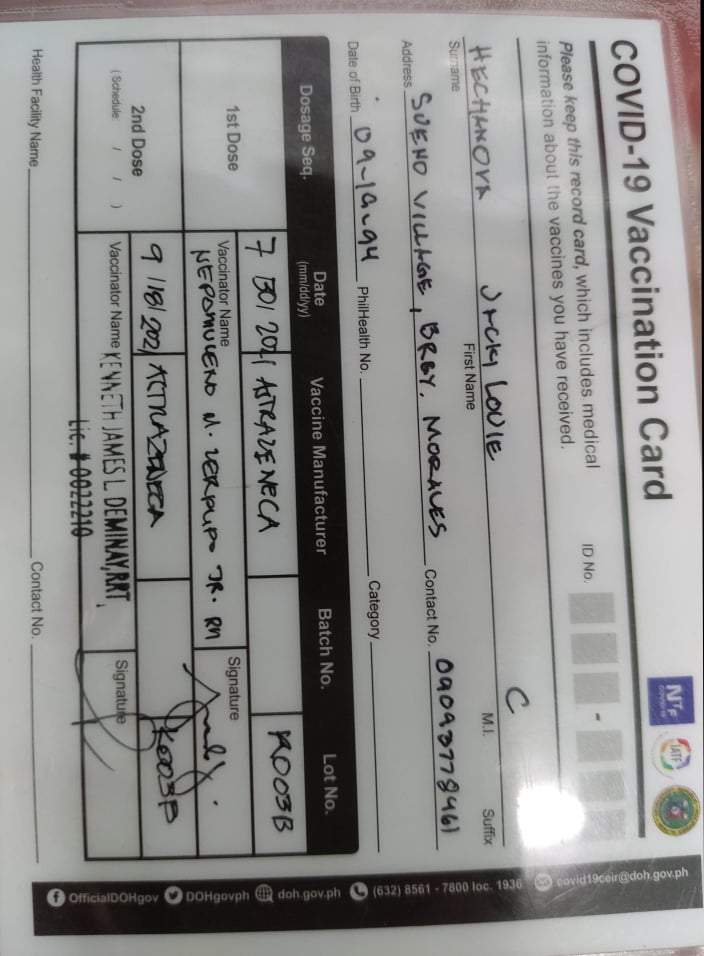 COVID-19 Vaccination Card
NTF
COVID-19
IATF
Please keep this record card, which includes medical
information about the vaccines you have received.
ID No. -
HECHANOVA JACKY LOUIE C
Surname First Name M.I. Suffix
Address SUENO VILLAGE, BRGY. MORALES Contact No. 09093778461
Date of Birth 09-19-94 PhilHealth No. Category
Dosage Seq. Date (mm/dd/yy) Vaccine Manufacturer Batch No. Lot No.
1st Dose 7/30/2021 ASTRAZENECA K003B
Vaccinator Name Signature
NEPOMUCENO M. JR. RN
2nd Dose 9/18/2021 ASTRAZENECA K003B
(Schedule: / / )
Vaccinator Name KENNETH JAMES L. DEMINAY, RRT. Signature
Lic. # 0022210
Health Facility Name Contact No.
OfficialDOHgov DOHgovph doh.gov.ph (632) 8561 - 7800 loc. 1936 covid19ceir@doh.gov.ph